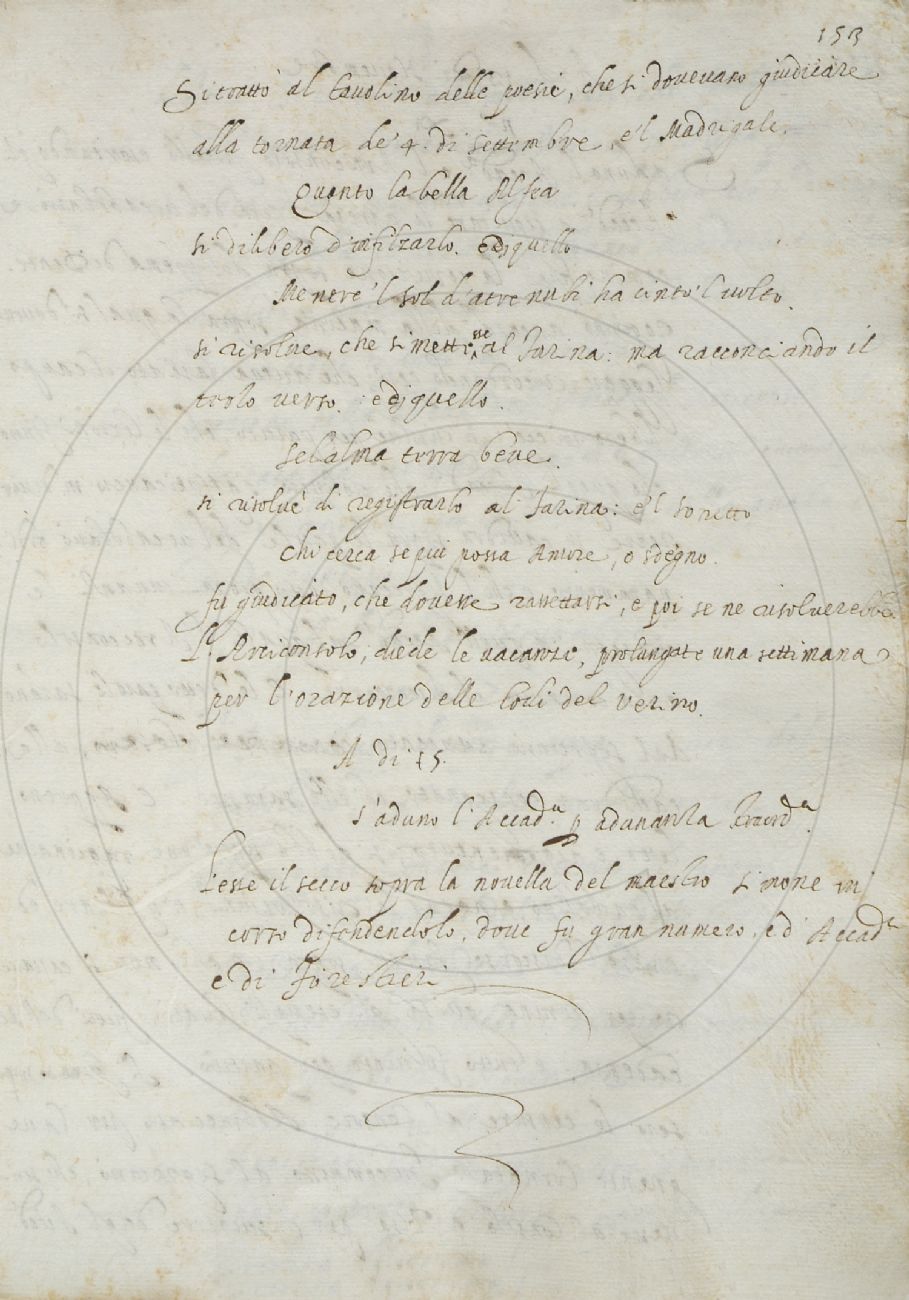 153
Si trattò al Tavolino delle poesie, che si dovevano giudicare
alla tornata de' 4. di settembre, e'l Madrigale.
Quanto la bella Alsea
si diliberò d'infilzarlo. e di quello
Mentre 'l sol d'atre nubi ha cinto 'l volto.
si risolve, che si mettesse al Farina: ma racconciando il
verso. e di quello.
Se l'alma terra beve.
si risolvé di registrarlo al Farina: e'l sonetto
Chi cerca se più possa Amore, o sdegno.
fu giudicato, che dovesse rassettarsi, e poi se ne risolverebbe.
L'Arciconsolo, diede le vacanze, prolungate una settimana
per l'orazione delle lodi del Verino.
A di 15.
S'adunò l'Accad.a p adunanza
Lesse il secco sopra la novella del maestro Simone in
corso difendendolo, dove fu gran numero, e d'Accad.i
e di Forestieri